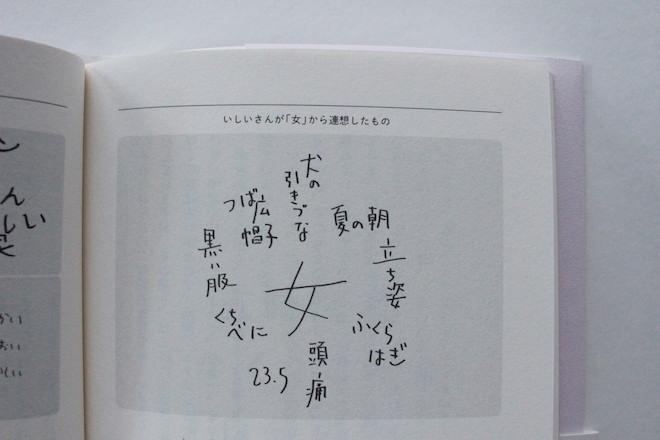 いしいさんが「女」から連想したもの
犬の
引きづな
夏の朝
立ち姿
ふくらはぎ
頭痛
23.5
くちべに
黒い服
つば広
帽子
女
ん
しい
かい
おい
しい